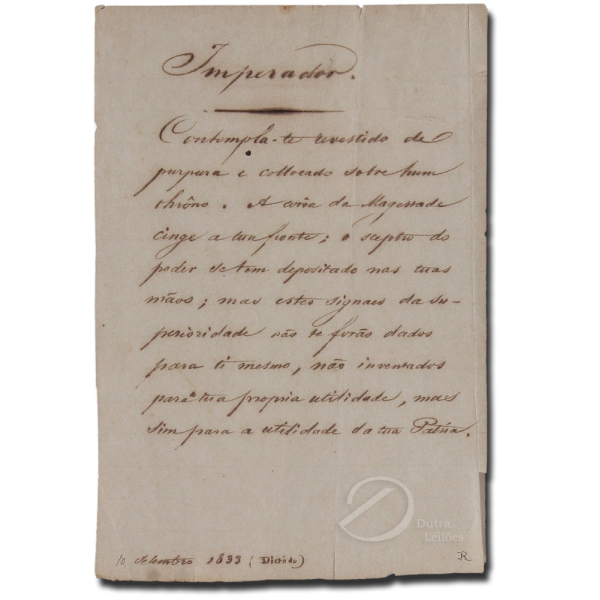 Imperador.
Contempla-te revestido de
purpura e collocado sobre hum
thrôno. A corôa da Magestade
cinge a tua fronte; o sceptro do
poder se tem depositado nas tuas
mãos; mas estes signaes da su-
perioridade não te forão dados
para ti mesmo, não inventados
para tua propria utilidade, mas
sim para a utilidade da tua Patria.
10, setembro 1833 (Dictado)
R
Dutra
Leilões